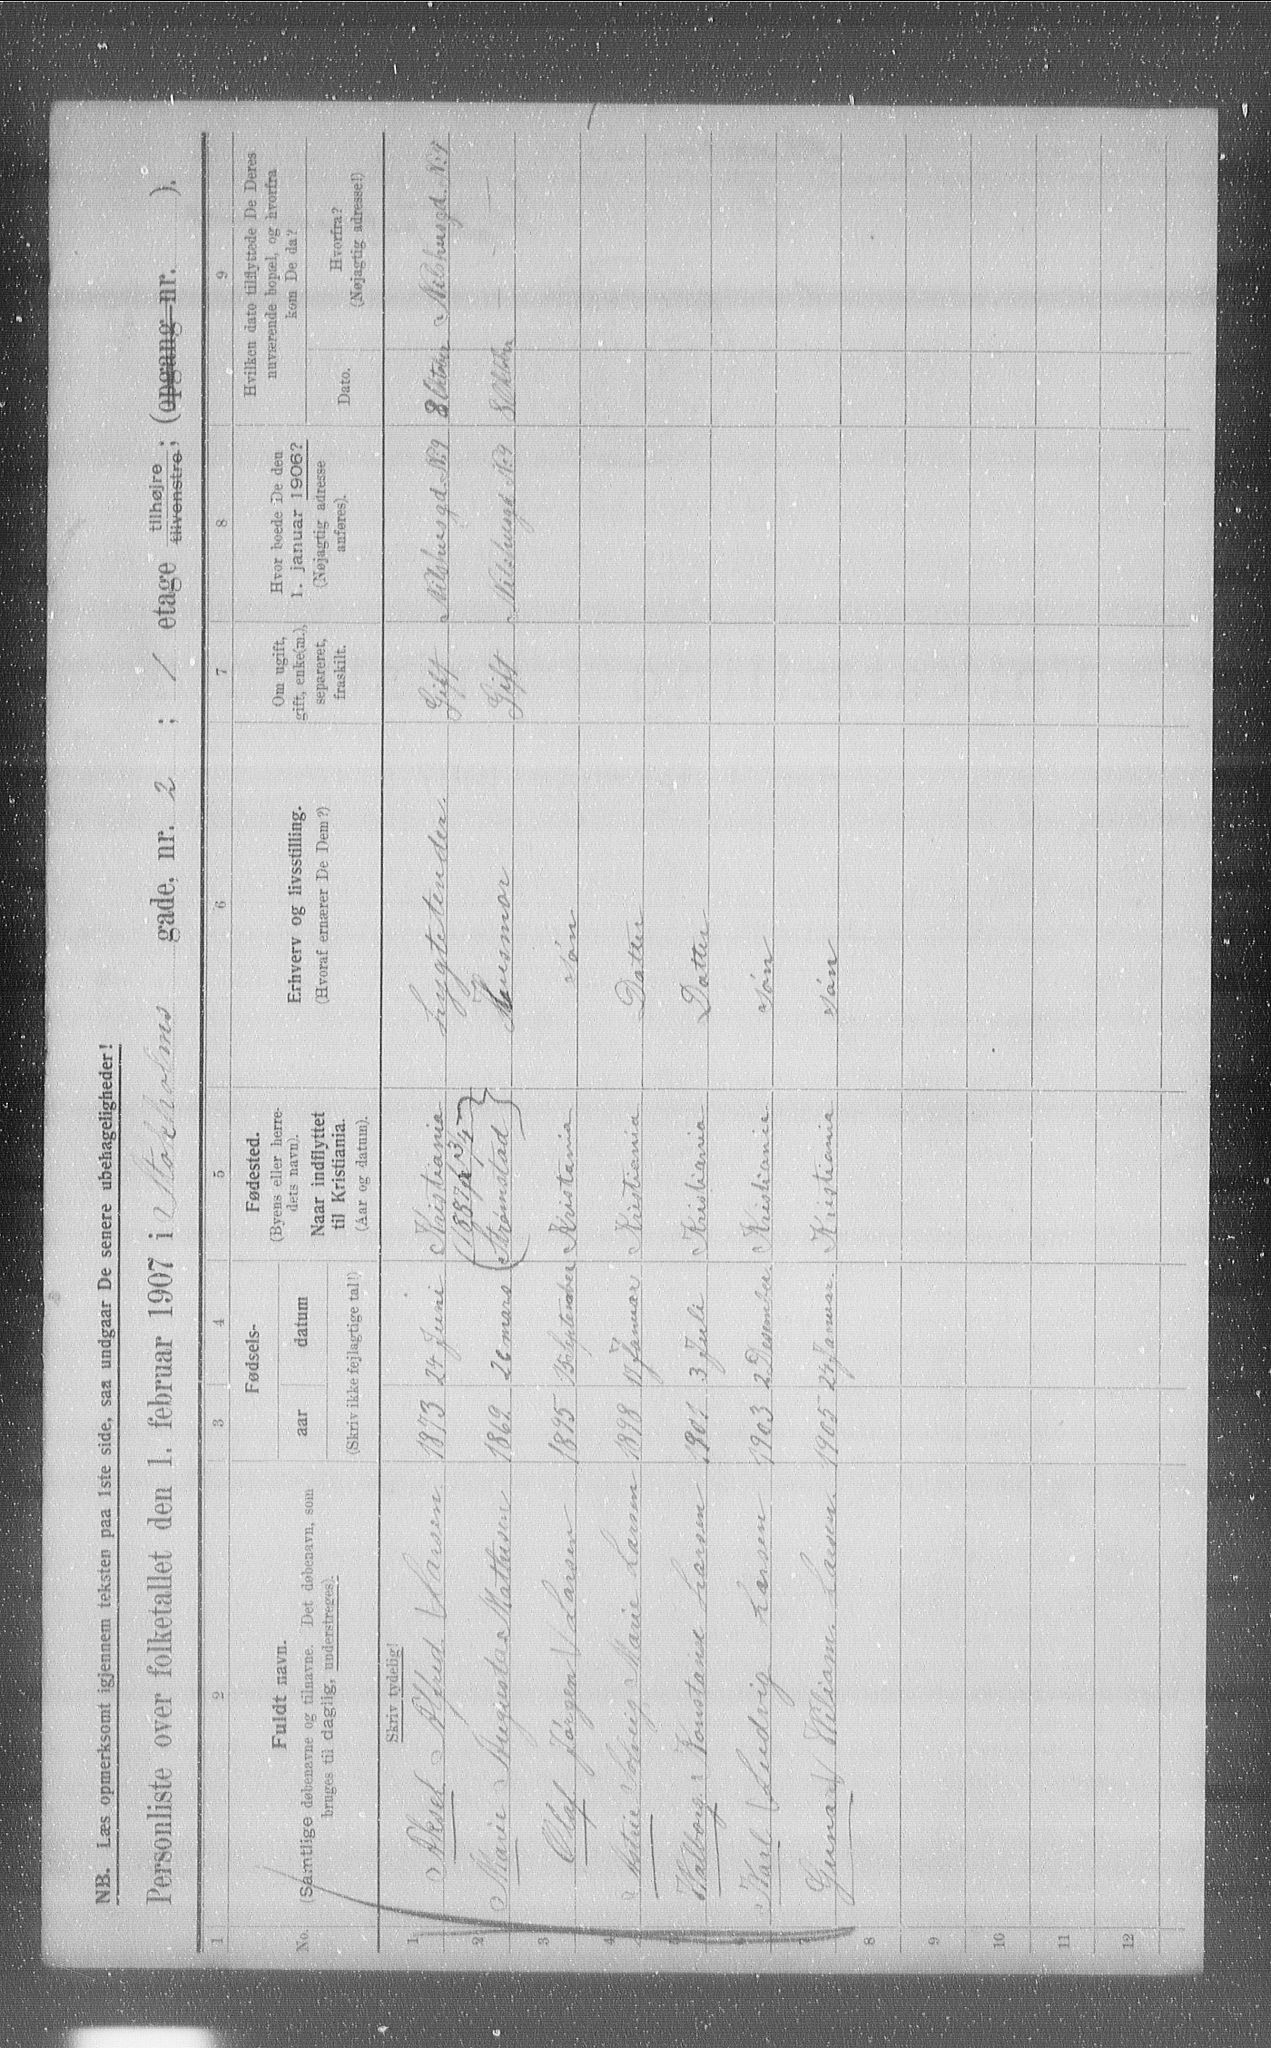 NB. Læs opmerksomt igjennem teksten paa 1ste side, saa undgaar De senere ubehageligheder!
Personliste over folketallet den 1. februar 1907 i Stokholms gade, nr. 2 ; 1 etage tilhøjre ; tilvenstre ; (opgang nr. ).
1 2 3 4 5 6 7 8 9
No.
Fuldt navn.
(Samtlige døbenavne og tilnavne. Det døbenavn, som
bruges til daglig, understreges).
Fødsels-
aar datum
(Skriv ikke fejlagtige tal!)
Fødested.
(Byens eller herre-
dets navn).
Naar indflyttet
til Kristiania.
(Aar og datum).
Erhverv og livsstilling.
(Hvoraf ernærer De Dem?)
Om ugift,
gift, enke(m.),
separeret,
fraskilt.
Hvor boede De den
1. januar 1906?
(Nøjagtig adresse
anføres).
Hvilken dato tilflyttede De Deres
nuværende bopæl, og hvorfra
kom De da?
Dato.
Hvorfra?
(Nøjagtig adresse!)
Skriv tydelig!
1 Aksel Alfred Larsen 1873 24 Juni Kristiania Lygtetender Gift Nilshusgd. No 9 8 Oktober Nilshusgd. No 9
2 Marie Augusta Mathisen 1869 26 mars (1887 Strømstad) Husmor Gift Nilshusgd No 9 8 Oktober — —
3 Olaf Jørgen Larsen 1895 15 September Kristania Søn
4 Astrie Solveig Marie Larsen 1898 11 Januar Kristiania Datter
5 Valborg Konstanse Larsen 1901 3 Juli Kristiania Datter
6 Karl Ludvig Larsen 1903 2 Desember Kristiania Søn
7 Gunnar Wiliam Larsen 1905 24 Januar Kristiania Søn
8
9
10
11
12